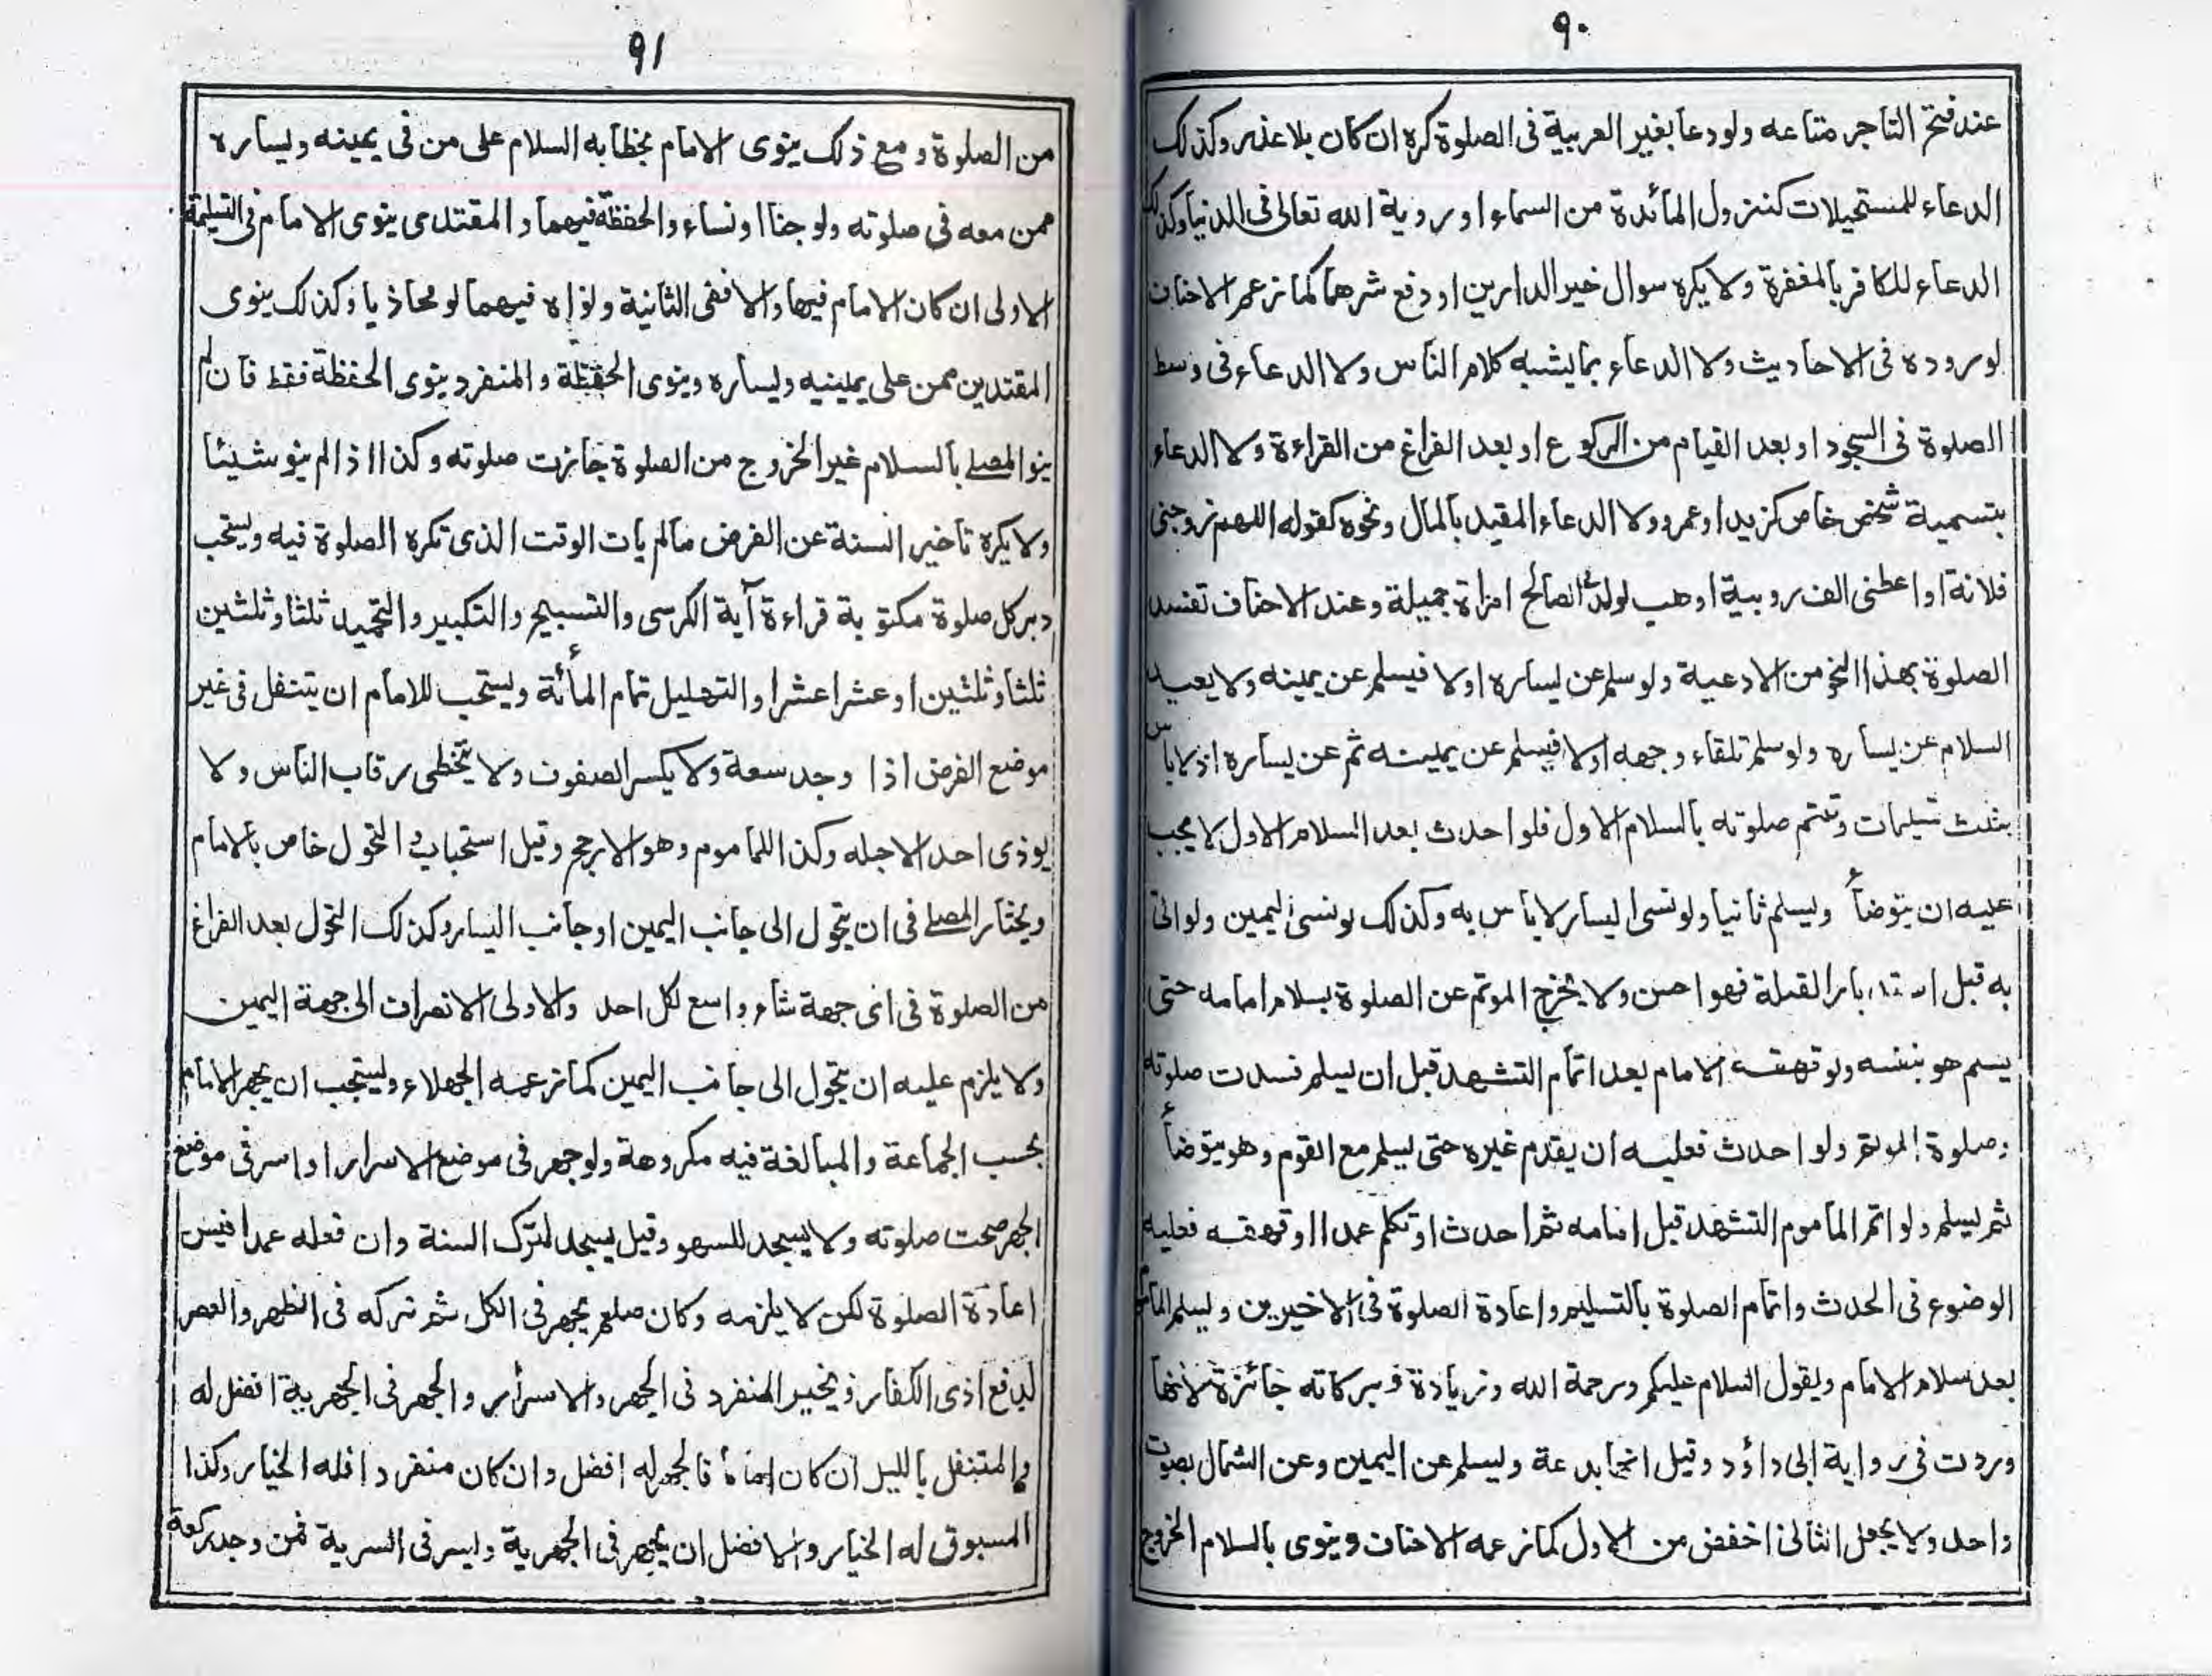 ٩٠
عند فتح التاجر متاعه ولو دعا بغير العربية فى الصلوة كره ان كان بلا عذر وكذلك
الدعاء للمستحيلات كنزول المائدة من السماء او روية الله تعالى فى الدنيا وكذلك
الدعاء للكافر بالمغفرة ولا يكره سوال خير الدارين او دفع شرهما كما زعم الاحناف
لوروده فى الاحاديث ولا الدعاء بما يشبه كلام الناس ولا الدعاء فى وسط
الصلوة فى السجود او بعد القيام من الركوع او بعد الفراغ من القراءة ولا الدعاء
بتسمية شخص خاص كزيد او عمرو ولا الدعاء المقيد بالمال ونحوه كقوله اللهم زوجنى
فلانة او اعطنى الف روبية او هب لولدى الصالح امراة جميلة وعند الاحناف تفسد
الصلوة بهذا النحو من الادعية ولو سلم عن يساره اولا فيسلم عن يمينه ولا يعيد
السلام عن يساره ولو سلم تلقاء وجهه اولا فيسلم عن يمينه ثم عن يساره اذ لا باس
بثلث تسليمات وتتم صلوته بالسلام الاول فلو احدث بعد السلام الاول لا يجب
عليه ان يتوضأ ويسلم ثانيا ولو نسى اليسار لا باس به وكذلك لو نسى اليمين ولو اتى
به قبل استدبار القبلة فهو احسن ولا يخرج الموتم عن الصلوة بسلام امامه حتى
يسلم هو بنفسه ولو قهقه الامام بعد اتمام التشهد قبل ان يسلم فسدت صلوته
وصلوة الموتم ولو احدث فعليه ان يقدم غيره حتى يسلم مع القوم وهو يتوضأ
ثم يسلم ولو اتم الماموم التشهد قبل امامه ثم احدث او تكلم عمدا او قهقه فعليه
الوضوء فى الحدث واتمام الصلوة بالتسليم واعادة الصلوة فى الاخيرين ويسلم الماموم
بعد سلام الامام ويقول السلام عليكم ورحمة الله وزيادة وبركاته جائزة لانها
وردت فى رواية ابى داؤد وقيل انها بدعة ويسلم عن اليمين وعن الشمال بصوت
واحد ولا يجعل الثانى اخفض من الاول كما زعمه الاحناف وينوى بالسلام الخروج
٩١
من الصلوة ومع ذلك ينوى الامام بخطابه السلام على من فى يمينه ويساره
ممن معه فى صلوته ولو جنا او نساء والحفظة فيهما والمقتدى ينوى الامام فى التسليمة
الاولى ان كان الامام فيها والا ففى الثانية ونواه فيهما لو محاذيا وكذلك ينوى
المقتدين ممن على يمينه ويساره وينوى الحفظة والمنفرد ينوى الحفظة فقط فان لم
ينو المصلے بالسلام غير الخروج من الصلوة جازت صلوته وكذا اذا لم ينو شيئا
ولا يكره تاخير السنة عن الفرض مالم يات الوقت الذى تكره الصلوة فيه ويستحب
دبر كل صلوة مكتوبة قراءة آية الكرسى والتسبيح والتكبير والتحميد ثلثا وثلثين
ثلثا وثلثين او عشرا عشرا والتهليل تمام المأئة ويستحب للامام ان يتنفل فى غير
موضع الفرض اذا وجد سعة ولا يكسر الصفوف ولا يتخطى رقاب الناس ولا
يوذى احدا لاجله وكذا للماموم وهو الارجح وقيل استحباب التحول خاص بالامام
ويختار المصلے فى ان يتحول الى جانب اليمين او جانب اليسار وكذلك التحول بعد الفراغ
من الصلوة فى اى جهة شاء واسع لكل احد والاولى الانصراف الى جهة اليمين
ولا يلزم عليه ان يتحول الى جانب اليمين كما زعمه الجهلاء ويستحب ان يجهر الامام
بحسب الجماعة والمبالغة فيه مكروهة ولو جهر فى موضع الاسرار او اسر فى موضع
الجهر صحت صلوته ولا يسجد للسهو وقيل يسجد لترك السنة وان فعله عمدا فيسن
اعادة الصلوة لكن لا يلزمه وكان صلعم يجهر فى الكل ثم تركه فى الظهر والعصر
لدفع اذى الكفار ويخير المنفرد فى الجهر والاسرار والجهر فى الجهرية افضل له
والمتنفل بالليل ان كان اماما فالجهر له افضل وان كان منفردا فله الخيار وكذا
المسبوق له الخيار والافضل ان يجهر فى الجهرية ويسر فى السرية فمن وجد ركعة